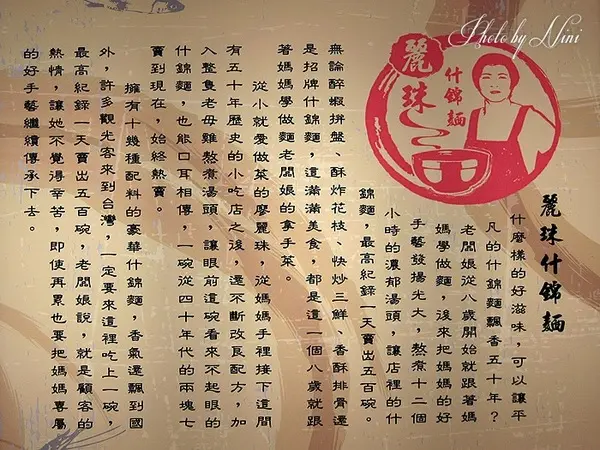 Photo by Nini
麗珠
什錦麵
麗珠什錦麵
什麼樣的好滋味，可以讓平
凡的什錦麵飄香五十年？
老闆娘從八歲開始就跟著媽
媽學做麵，後來把媽媽的好
手藝發揚光大，熬煮十二個
小時的濃郁湯頭，讓店裡的什
錦麵，最高紀錄一天賣出五百碗。
無論醉蝦拼盤、酥炸花枝、快炒三鮮、香酥排骨還
是招牌什錦麵，這滿滿美食，都是這一個八歲就跟
著媽媽學做麵老闆娘的拿手菜。
從小就愛做菜的廖麗珠，從媽媽手裡接下這間
有五十年歷史的小吃店之後，還不斷改良配方，加
入整隻老母雞熬煮湯頭，讓眼前這碗看來不起眼的
什錦麵，也能口耳相傳，一碗從四十年代的兩塊七
賣到現在，始終熱賣。
擁有十幾種配料的豪華什錦麵，香氣還飄到國
外，許多觀光客來到台灣，一定要來這裡吃上一碗，
最高紀錄一天賣出五百碗，老闆娘說，就是顧客的
熱情，讓她不覺得辛苦，即使再累也要把媽媽專屬
的好手藝繼續傳承下去。